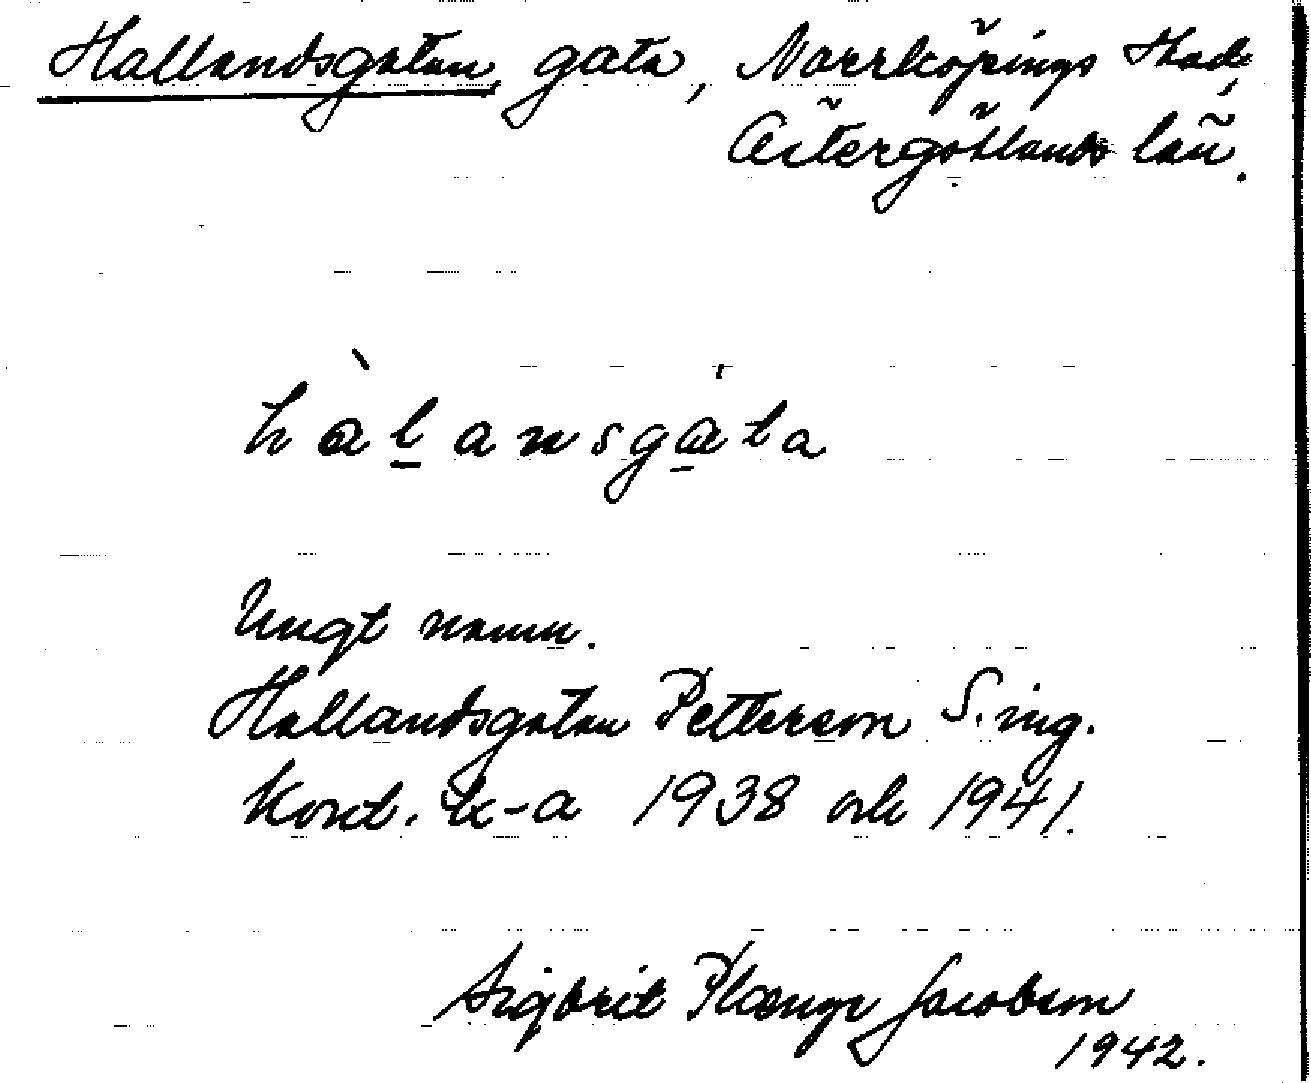 Hallandsgatan, gata, Norrköpings stad,
Östergötlands län.
hàlansgàta
Ungt namn.
Hallandsgatan Petterson S. ing.
Kont. k-a 1938 och 1941.
Sigbrit Plænge Jacobson
1942.